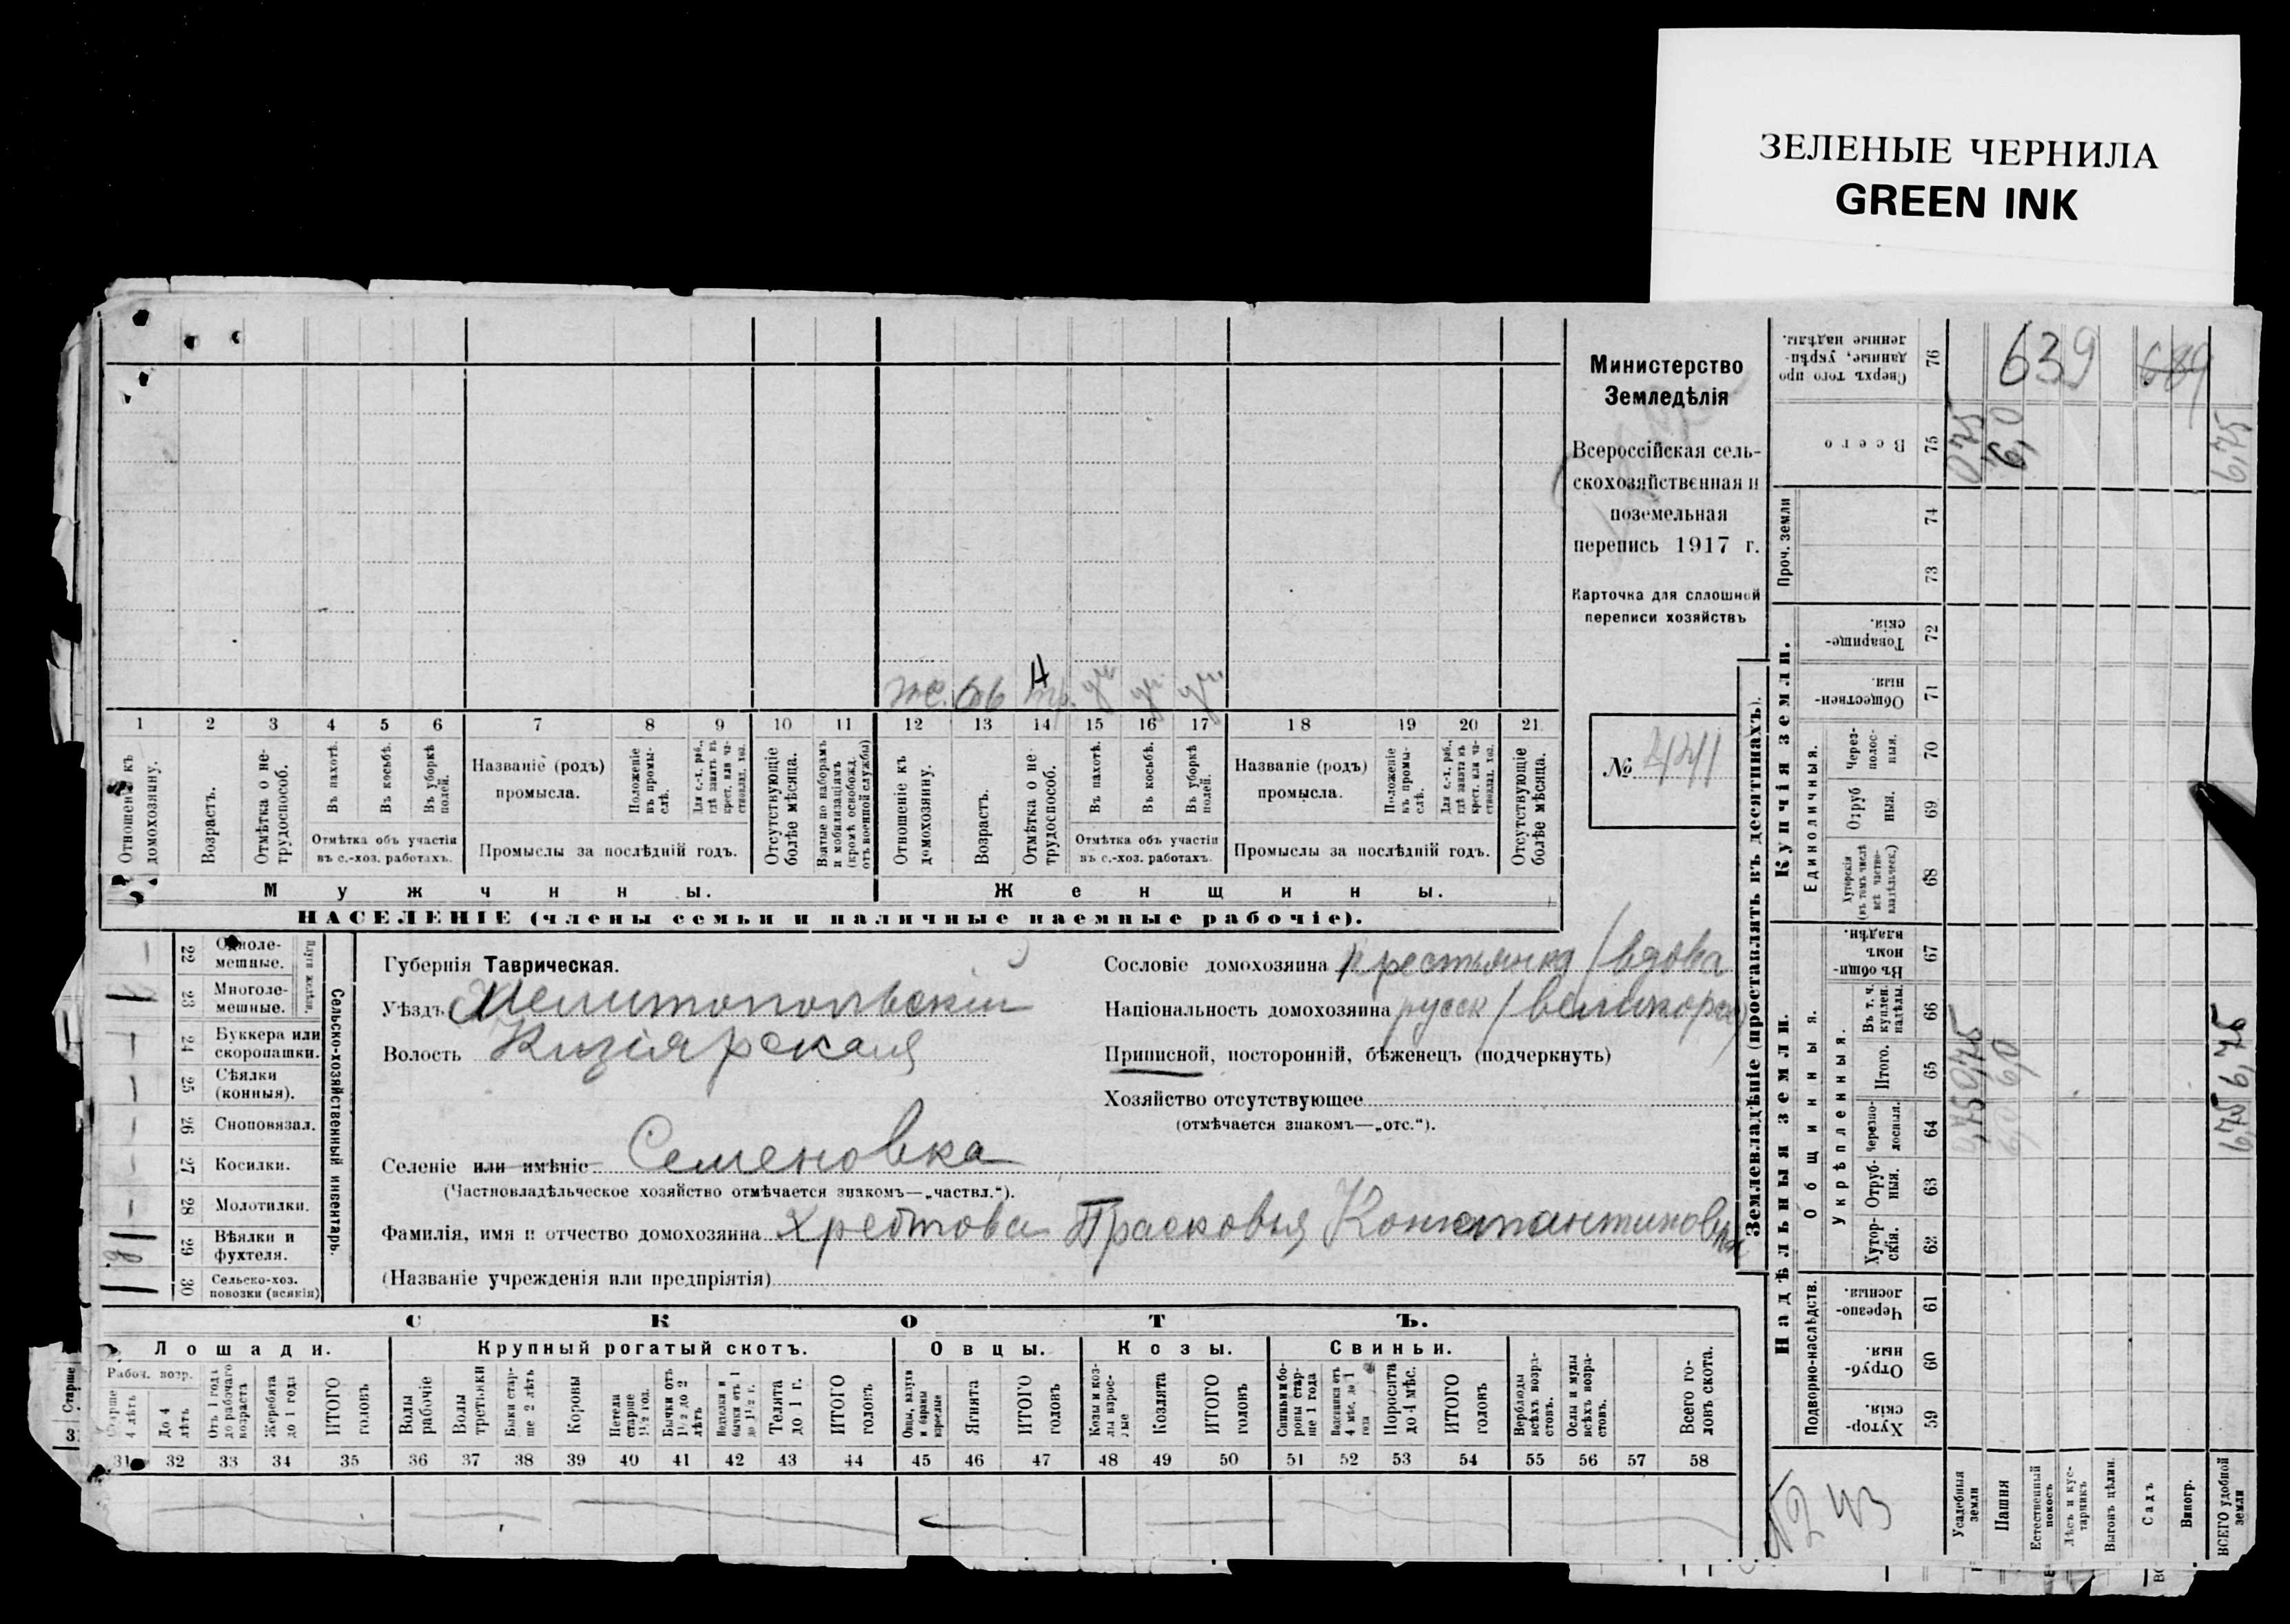 ЗЕЛЕНЫЕ ЧЕРНИЛА
GREEN INK
Министерство
Земледѣлія
Всероссійская сель-
скохозяйственная и
поземельная
перепись 1917 г.
Карточка для сплошной
переписи хозяйствъ
№
ж. 66 тр.
1 2 3 4 5 6 7 8 9 10 11 12 13 14 15 16 17 18 19 20 21
Отношеніе къ домохозяину.
Возрастъ.
Отмѣтка о не-трудоспособ.
Въ пахотѣ.
Въ косьбѣ.
Въ уборкѣ полей.
Отмѣтка объ участіи
въ с.-хоз. работахъ.
Названіе (родъ)
промысла.
Положеніе въ промы-слѣ.
Для с.-х. раб., гдѣ занятъ въ крест. или ча-стновлад. хоз.
Промыслы за послѣдній годъ.
Отсутствующіе болѣе мѣсяца.
Взятые по наборамъ и мобилизаціямъ (кромѣ освобожд. отъ военной службы)
Отношеніе къ домохозяину.
Возрастъ.
Отмѣтка о не-трудоспособ.
Въ пахотѣ.
Въ косьбѣ.
Въ уборкѣ полей.
Отмѣтка объ участіи
въ с.-хоз. работахъ.
Названіе (родъ)
промысла.
Положеніе въ промы-слѣ.
Для с.-х. раб., гдѣ занята въ крест. или ча-стновлад. хоз.
Промыслы за послѣдній годъ.
Отсутствующіе болѣе мѣсяца.
Мужчины.
Женщины.
НАСЕЛЕНІЕ (члены семьи и наличные наемные рабочіе).
Сельско-хозяйственный инвентарь.
22 Одноле-мешные.
23 Многоле-мешные.
24 Буккера или скоропашки.
25 Сѣялки (конныя).
26 Сноповязал.
27 Косилки.
28 Молотилки.
29 Вѣялки и фухтеля.
30 Сельско-хоз. повозки (всякія)
Губернія Таврическая.
Уѣздъ Мелитопольскій
Волость Кизіярская
Селеніе или имѣніе Семеновка
(Частновладѣльческое хозяйство отмѣчается знакомъ—„частвл.“).
Сословіе домохозяина крестьянка /вдова
Національность домохозяина русск /великорос)
Приписной, посторонній, бѣженецъ (подчеркнуть)
Хозяйство отсутствующее
(отмѣчается знакомъ—„отс.“).
Фамилія, имя и отчество домохозяина Хребтова Прасковья Константиновна
(Названіе учрежденія или предпріятія)
СКОТЪ.
Лошади.
Крупный рогатый скотъ.
Овцы.
Козы.
Свиньи.
Рабоч. возр.
Старше 4 лѣтъ
До 4 лѣтъ
Отъ 1 года до рабочаго возраста
Жеребята до 1 года
ИТОГО головъ
Волы рабочіе
Волы третьяки
Быки стар-ше 2 лѣтъ
Коровы
Нетели старше 1½ год.
Бычки отъ 1½ до 2 лѣтъ
Телята до 1 г.
ИТОГО головъ
Овцы, валухи и бараны взрослые
Ягнята
ИТОГО головъ
Козы и коз-лы взрос-лые
Козлята
ИТОГО головъ
Свиньи и бо-ровы стар-ше 1 года
Подсвинки отъ 4 мѣс. до 1 года
Поросята до 4 мѣс.
ИТОГО головъ
Верблюды всѣхъ возра-стовъ.
Ослы и мулы всѣхъ возра-стовъ.
Всего го-ловъ скота.
31 32 33 34 35 36 37 38 39 40 41 42 43 44 45 46 47 48 49 50 51 52 53 54 55 56 57 58
Землевладѣніе (проставлять въ десятинахъ).
Купчія земли.
Надѣльныя земли.
Сверхъ того про-данные, укрѣп-ленные надѣлы. 76
Всего 75
Проч. земли 74 73
Товарище-скія. 72
Обществен-ныя. 71
Единоличныя.
Через-полос-ныя. 70
Отруб-ныя. 69
Хуторскія (въ томъ числѣ всѣ частно-владѣльческ.) 68
Общинныя.
Въ общи-номъ владѣн. 67
Укрѣпленныя.
Въ т. ч. куплен. надѣлы. 66
Итого. 65
Черезпо-лосныя. 64
Отруб-ныя. 63
Хутор-скія. 62
Подворно-наслѣдств.
Черезпо-лосныя. 61
Отруб-ныя. 60
Хутор-скія. 59
Усадебныя земли
Пашня
Естественный покосъ
Лѣсъ и кус-тарникъ
Выгонъ цѣлин.
Садъ
Виногр.
ВСЕГО удобной земли
639
689
0,75
6,0
6,75
0,75 0,75
6,0 6,0
6,75 6,75